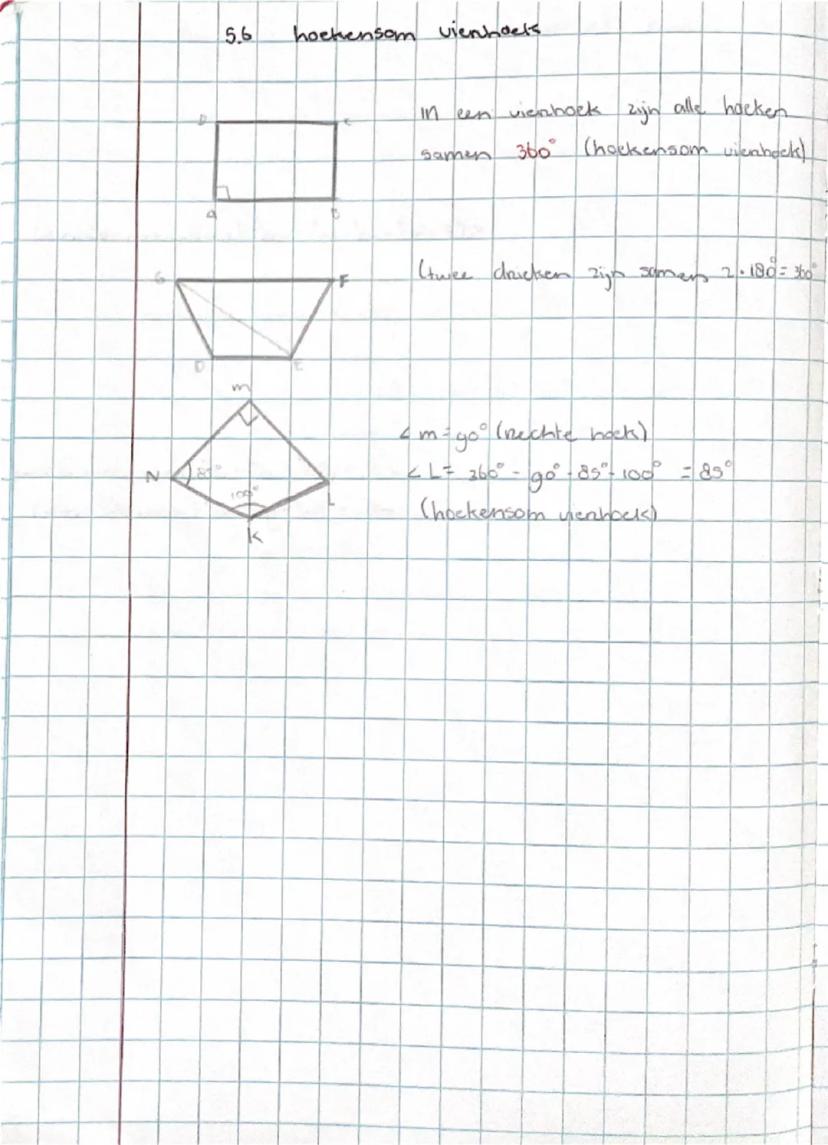 5.6 hoekensom vierhoek
D C
in een vierhoek zijn alle hoeken
samen 360° (hoekensom vierhoek)
A B
G F
(twee driehoeken zijn samen 2·180°=360°
D E
M
∠M=90° (rechte hoek)
N 85°
∠L= 360° - 90° - 85° - 100° = 85°
100°
L
(hoekensom vierhoek)
K